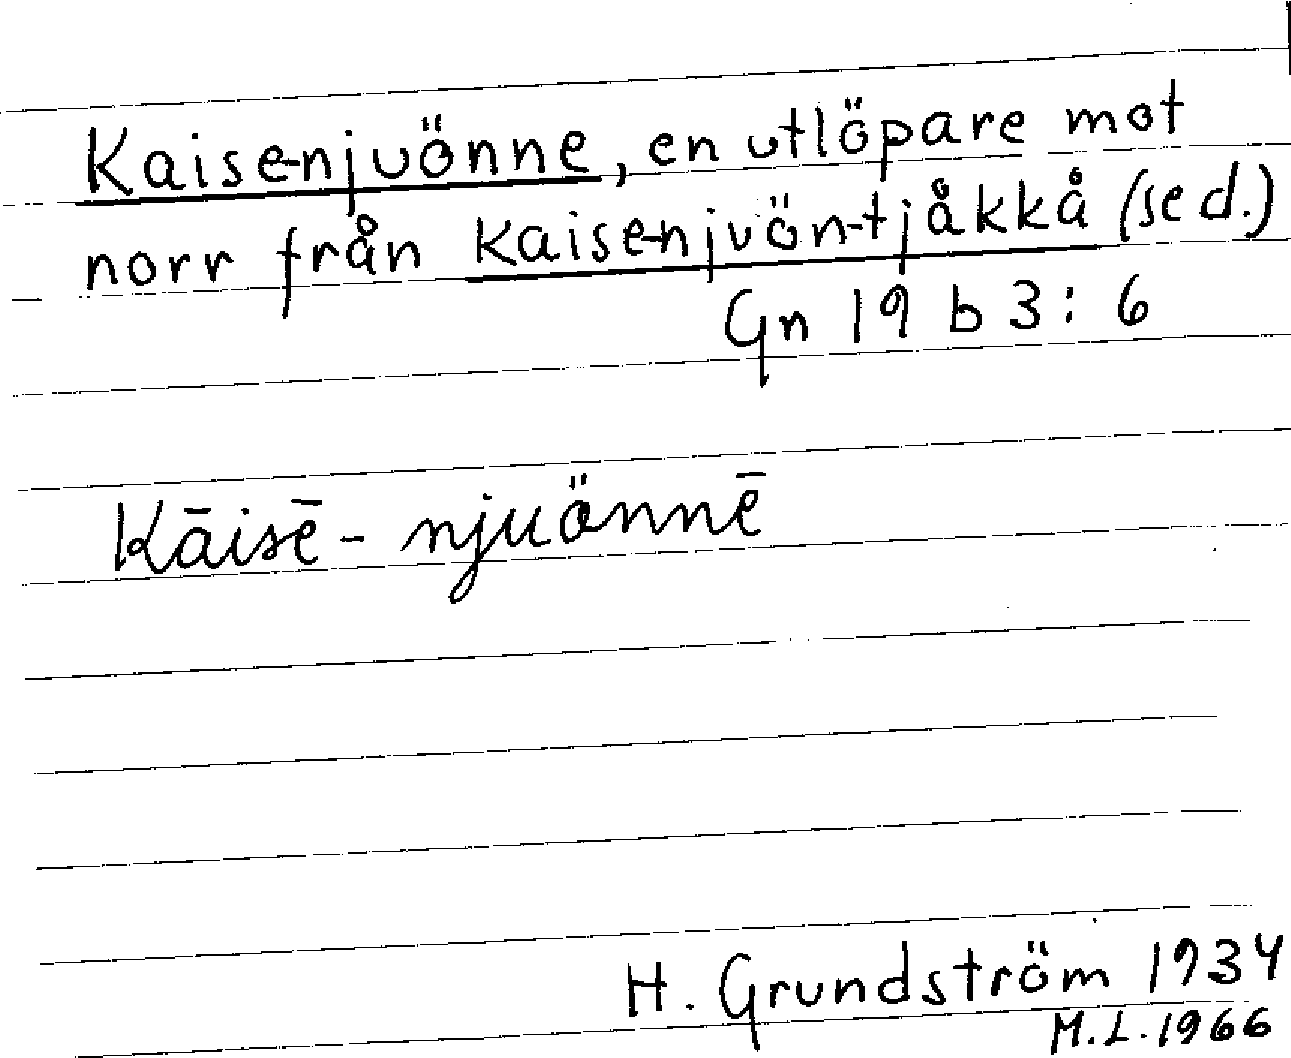 Kaise-njuönne, en utlöpare mot
norr från Kaise-njuön-tjåkkå (se d.)
Gn 19 b 3: 6
Kāisē - njuönnē
H. Grundström 1934
M.L. 1966